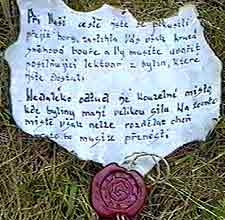 Při Vaší cestě jste se pokusili
přejít hory, zastihla Vás však krutá
sněhová bouře a Vy musíte uvařit
posilňující lektvar z bylin, které
jste dostali.
Nedaleko odtud je kouzelné místo,
kde byliny mají velikou sílu. Na tomto
místě však nelze rozdělat oheň
musíte přenést.